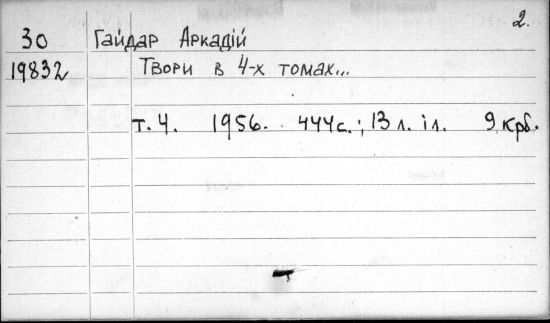 2.
30 Гайдар Аркадій
19832 Твори в 4-х томах...
т. 4. 1956. 444с.; 13 л. іл. 9 крб.